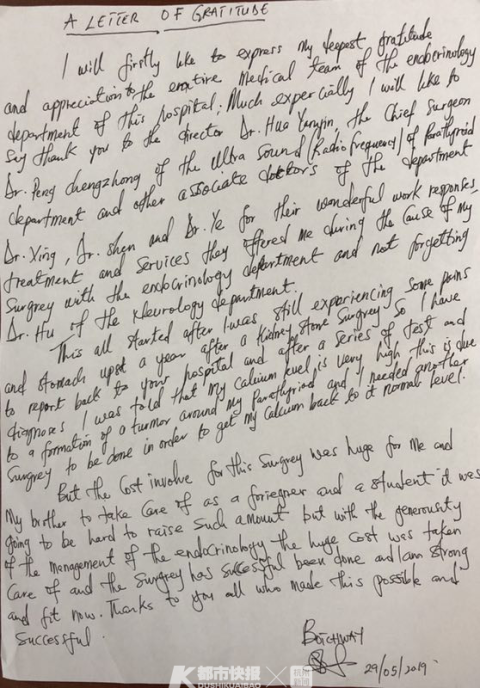 A LETTER OF GRATITUDE
I will firstly like to express my deepest gratitude
and appreciation to the entire Medical team of the endocrinology
department of this hospital; Much expercially I will like to
say thank you to the director Dr. Hua Yanyin, the Chief Surgeon
Dr. Peng chengzhong of the Ultra Sound (Radio frequency) of Parathyroid
department and other associate doctors of the department
Dr. Ying, Dr. shen and Dr. Ye for their wonderful work responses,
treatment and services they offered me during the Cause of my
Surgrey with the endocrinology department and not forgetting
Dr. Hu of the department.
This all started after I was still experiencing some pains
and stomach upset a year after a Kidney Stone Surgrey So I have
to report back to your hospital and after a series of test and
diagnoses I was told that my Calcium level is very high this is due
to a formation of a turmor around my Parathyriod and I needed another
Surgrey to be done in order to get my Calcium back to it normal level.
But the Cost involve for this Surgrey was huge for me and
My brother to take Care of as a foriegner and a student it was
going to be hard to raise Such amount but with the generousity
of the management of the endocrinology the huge Cost was taken
Care of and the Surgrey has successful been done and I am strong
and fit now. Thanks to you all who made this possible and
Successful.
BOTCHWAY
29/05/2019
K 都市快报
DUSHIKUAIBAO